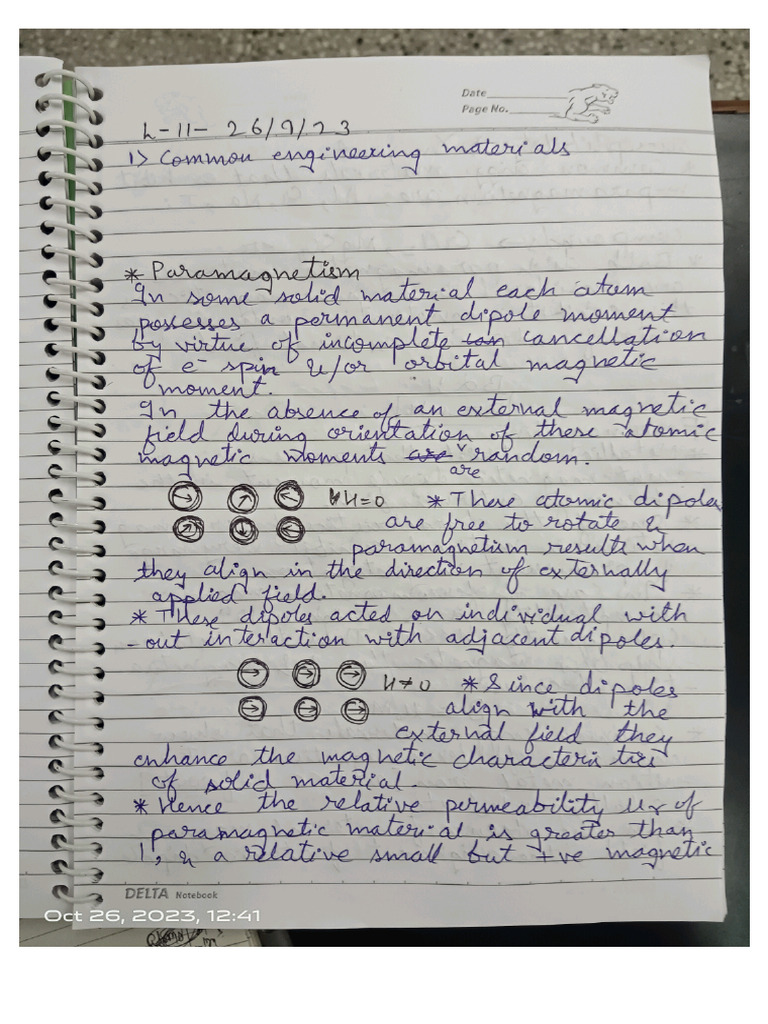 Date
Page No.
L-11- 26/9/23
1) Common engineering materials
* Paramagnetism
In some solid material each atom
possesses a permanent dipole moment
by virtue of incomplete can cancellation
of e- spin &/or orbital magnetic
moment.
In the absence of an external magnetic
field during orientation of these atomic
magnetic moments are random.
are
H=0 * These atomic dipoles
are free to rotate &
paramagnetism results when
they align in the direction of externally
applied field.
* These dipoles acted on individual with
-out interaction with adjacent dipoles.
H≠0 * Since dipoles
align with the
external field they
enhance the magnetic characteristics
of solid material.
* Hence the relative permeability μr of
paramagnetic material is greater than
1, & a relative small but +ve magnetic
DELTA Notebook
Oct 26, 2023, 12:41